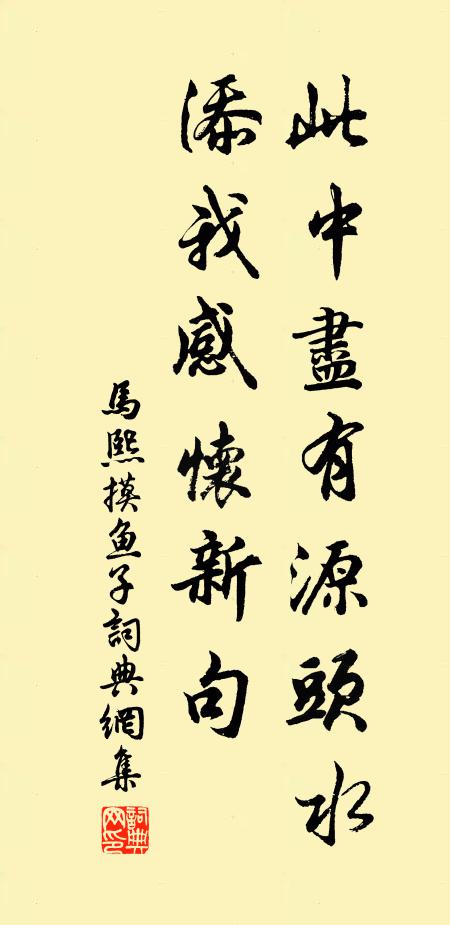 此中盡有源頭水
添我感懷新句
馬熙摸魚子詞典網集
詞典网印